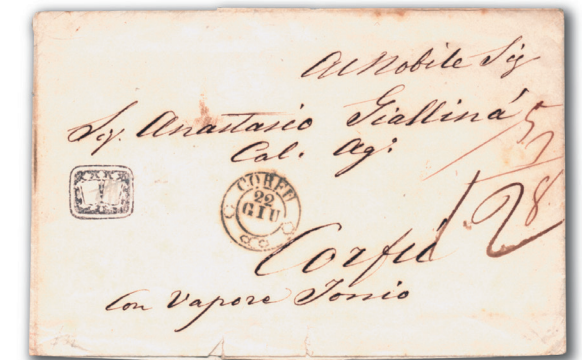 Al Nobile Sig
Sr. Anastasio Giallinà
Cal. Ag:
CORFU
22
GIU
Corfù
Con Vapore Jonio